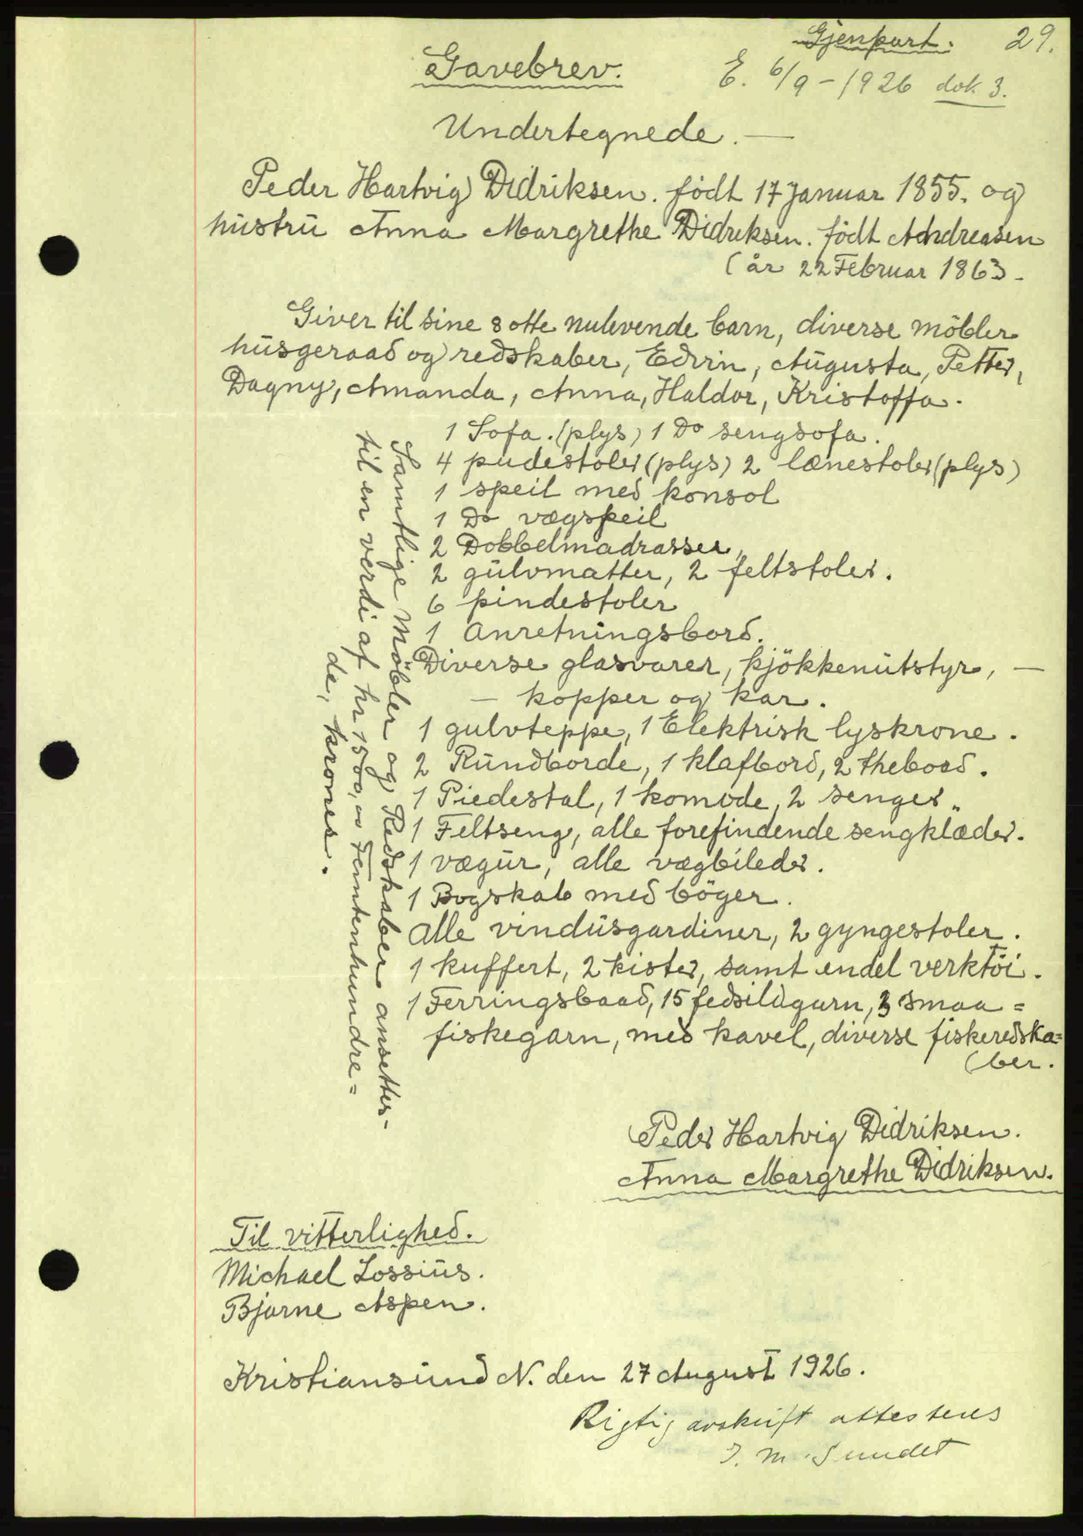 Gjenpart. 29.
Gavebrev.
E. 6/9-1926 dok. 3.
Undertegnede. —
Peder Hartvig Didriksen. födt 17 Januar 1855. og
hustru Anna Margrethe Didriksen. födt Andreasen
(år 22 Februar 1863.
Giver til sine 8 otte nulevende barn, diverse möbler
husgeraad og redskaber, Edvin, Augusta, Petter,
Dagny, Amanda, Anna, Haldor, Kristoffa.
1 Sofa. (plys) 1 Do sengsofa.
4 pudestoler (plys) 2 lænestoler (plys)
1 speil med konsol
1 Do vægspeil
2 Dobbelmadrasser,
2 gulvmatter, 2 feltstoler.
6 pindestoler
1 Anretningsbord.
Diverse glasvarer, kjökkenutstyr, —
— kopper og kar.
1 gulvteppe, 1 Elektrisk lyskrone.
2 Rundborde, 1 klafbord, 2 thebord.
1 Piedestal, 1 komode, 2 senger.
1 Feltseng, alle forefindende sengklæder.
1 vægur, alle vægbileder.
1 Bogskab med böger.
Alle vindusgardiner, 2 gyngestoler.
1 kuffert, 2 kister, samt endel verktöi.
1 Ferringsbaad, 15 fedsildgarn, 3 smaa=
fiskegarn, med kavel, diverse fiskeredska=
(ber.
Samtlige Möbler og Redskaber ansettes-
til en verdi af kr. 1500,00 Femtenhundre=
de, kroner.
Peder Hartvig Didriksen.
Anna Margrethe Didriksen.
Til vitterlighed.
Michael Lossius.
Bjarne Aspen.
Kristiansund N. den 27 August 1926.
Rigtig avskrift attesteres
J. M. Sundet